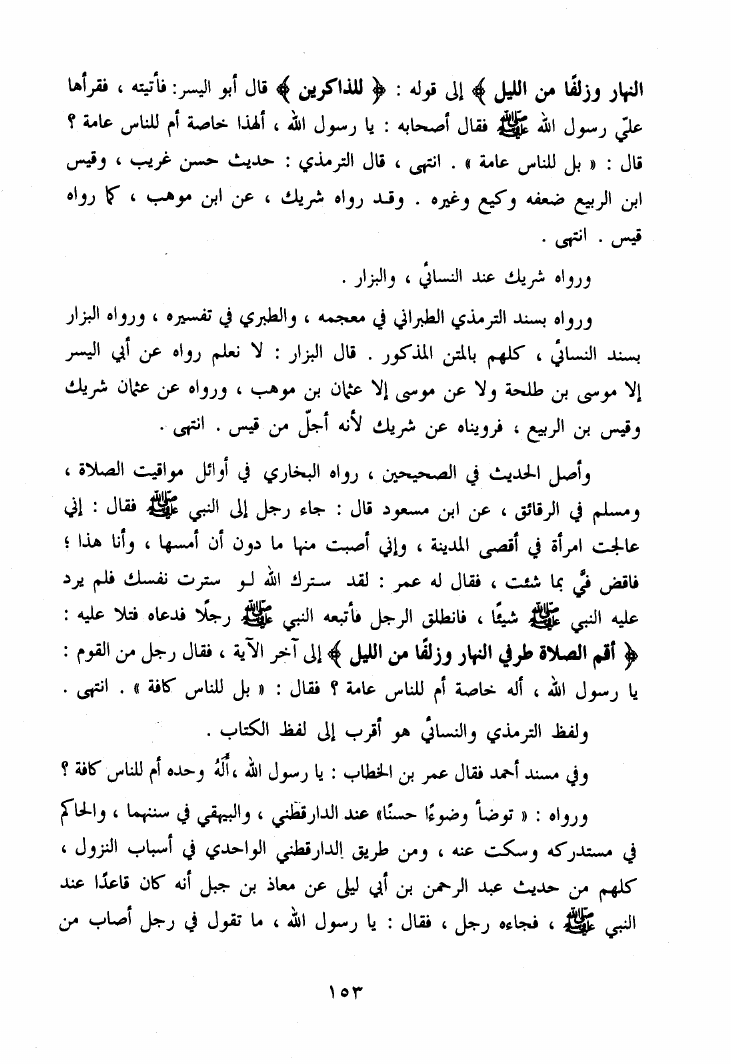 النهار وزلفًا من الليل ﴾ إلى قوله : ﴿ للذاكرين ﴾ قال أبو اليسر: فأتيته ، فقرأها
عليّ رسول الله ﷺ فقال أصحابه : يا رسول الله ، ألهذا خاصة أم للناس عامة ؟
قال : « بل للناس عامة » . انتهى ، قال الترمذي : حديث حسن غريب ، وقيس
ابن الربيع ضعفه وكيع وغيره . وقد رواه شريك ، عن ابن موهب ، كما رواه
قيس . انتهى .
ورواه شريك عند النسائي ، والبزار .
ورواه بسند الترمذي الطبراني في معجمه ، والطبري في تفسيره ، ورواه البزار
بسند النسائي ، كلهم بالمتن المذكور . قال البزار : لا نعلم رواه عن أبي اليسر
إلا موسى بن طلحة ولا عن موسى إلا عثمان بن موهب ، ورواه عن عثمان شريك
وقيس بن الربيع ، فرويناه عن شريك لأنه أجلّ من قيس . انتهى .
وأصل الحديث في الصحيحين ، رواه البخاري في أوائل مواقيت الصلاة ،
ومسلم في الرقائق ، عن ابن مسعود قال : جاء رجل إلى النبي ﷺ فقال : إني
عالجت امرأة في أقصى المدينة ، وإني أصبت منها ما دون أن أمسها ، وأنا هذا ؛
فاقض فيَّ بما شئت ، فقال له عمر : لقد سترك الله لو سترت نفسك فلم يرد
عليه النبي ﷺ شيئًا ، فانطلق الرجل فأتبعه النبي ﷺ رجلًا فدعاه فتلا عليه :
﴿ أقم الصلاة طرفي النهار وزلفًا من الليل ﴾ إلى آخر الآية ، فقال رجل من القوم :
يا رسول الله ، أله خاصة أم للناس عامة ؟ فقال : « بل للناس كافة » . انتهى .
ولفظ الترمذي والنسائي هو أقرب إلى لفظ الكتاب .
وفي مسند أحمد فقال عمر بن الخطاب : يا رسول الله ، أَلَهُ وحده أم للناس كافة ؟
ورواه : « توضأ وضوءًا حسنًا» عند الدارقطني ، والبيهقي في سننهما ، والحاكم
في مستدركه وسكت عنه ، ومن طريق الدارقطني الواحدي في أسباب النزول ،
كلهم من حديث عبد الرحمن بن أبي ليلى عن معاذ بن جبل أنه كان قاعدًا عند
النبي ﷺ ، فجاءه رجل ، فقال : يا رسول الله ، ما تقول في رجل أصاب من
١٥٣